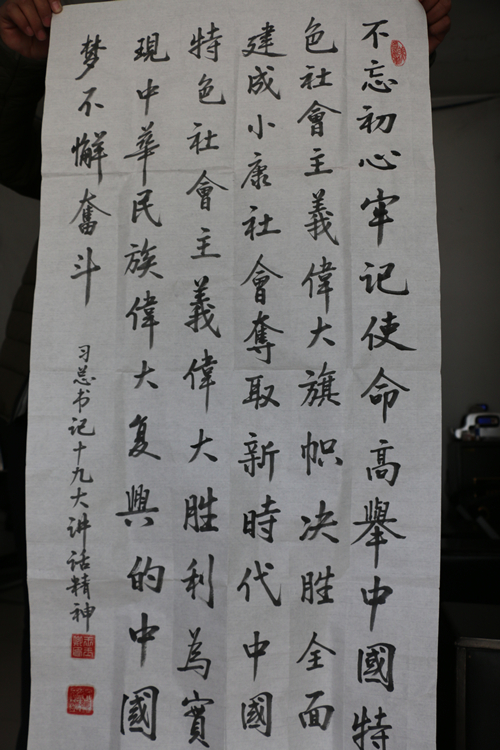 不忘初心牢记使命高舉中國特
色社會主義偉大旗帜决胜全面
建成小康社會奪取新時代中國
特色社會主義偉大胜利為實
現中華民族偉大复興的中國
梦不懈奮斗
习总书记十九大讲话精神